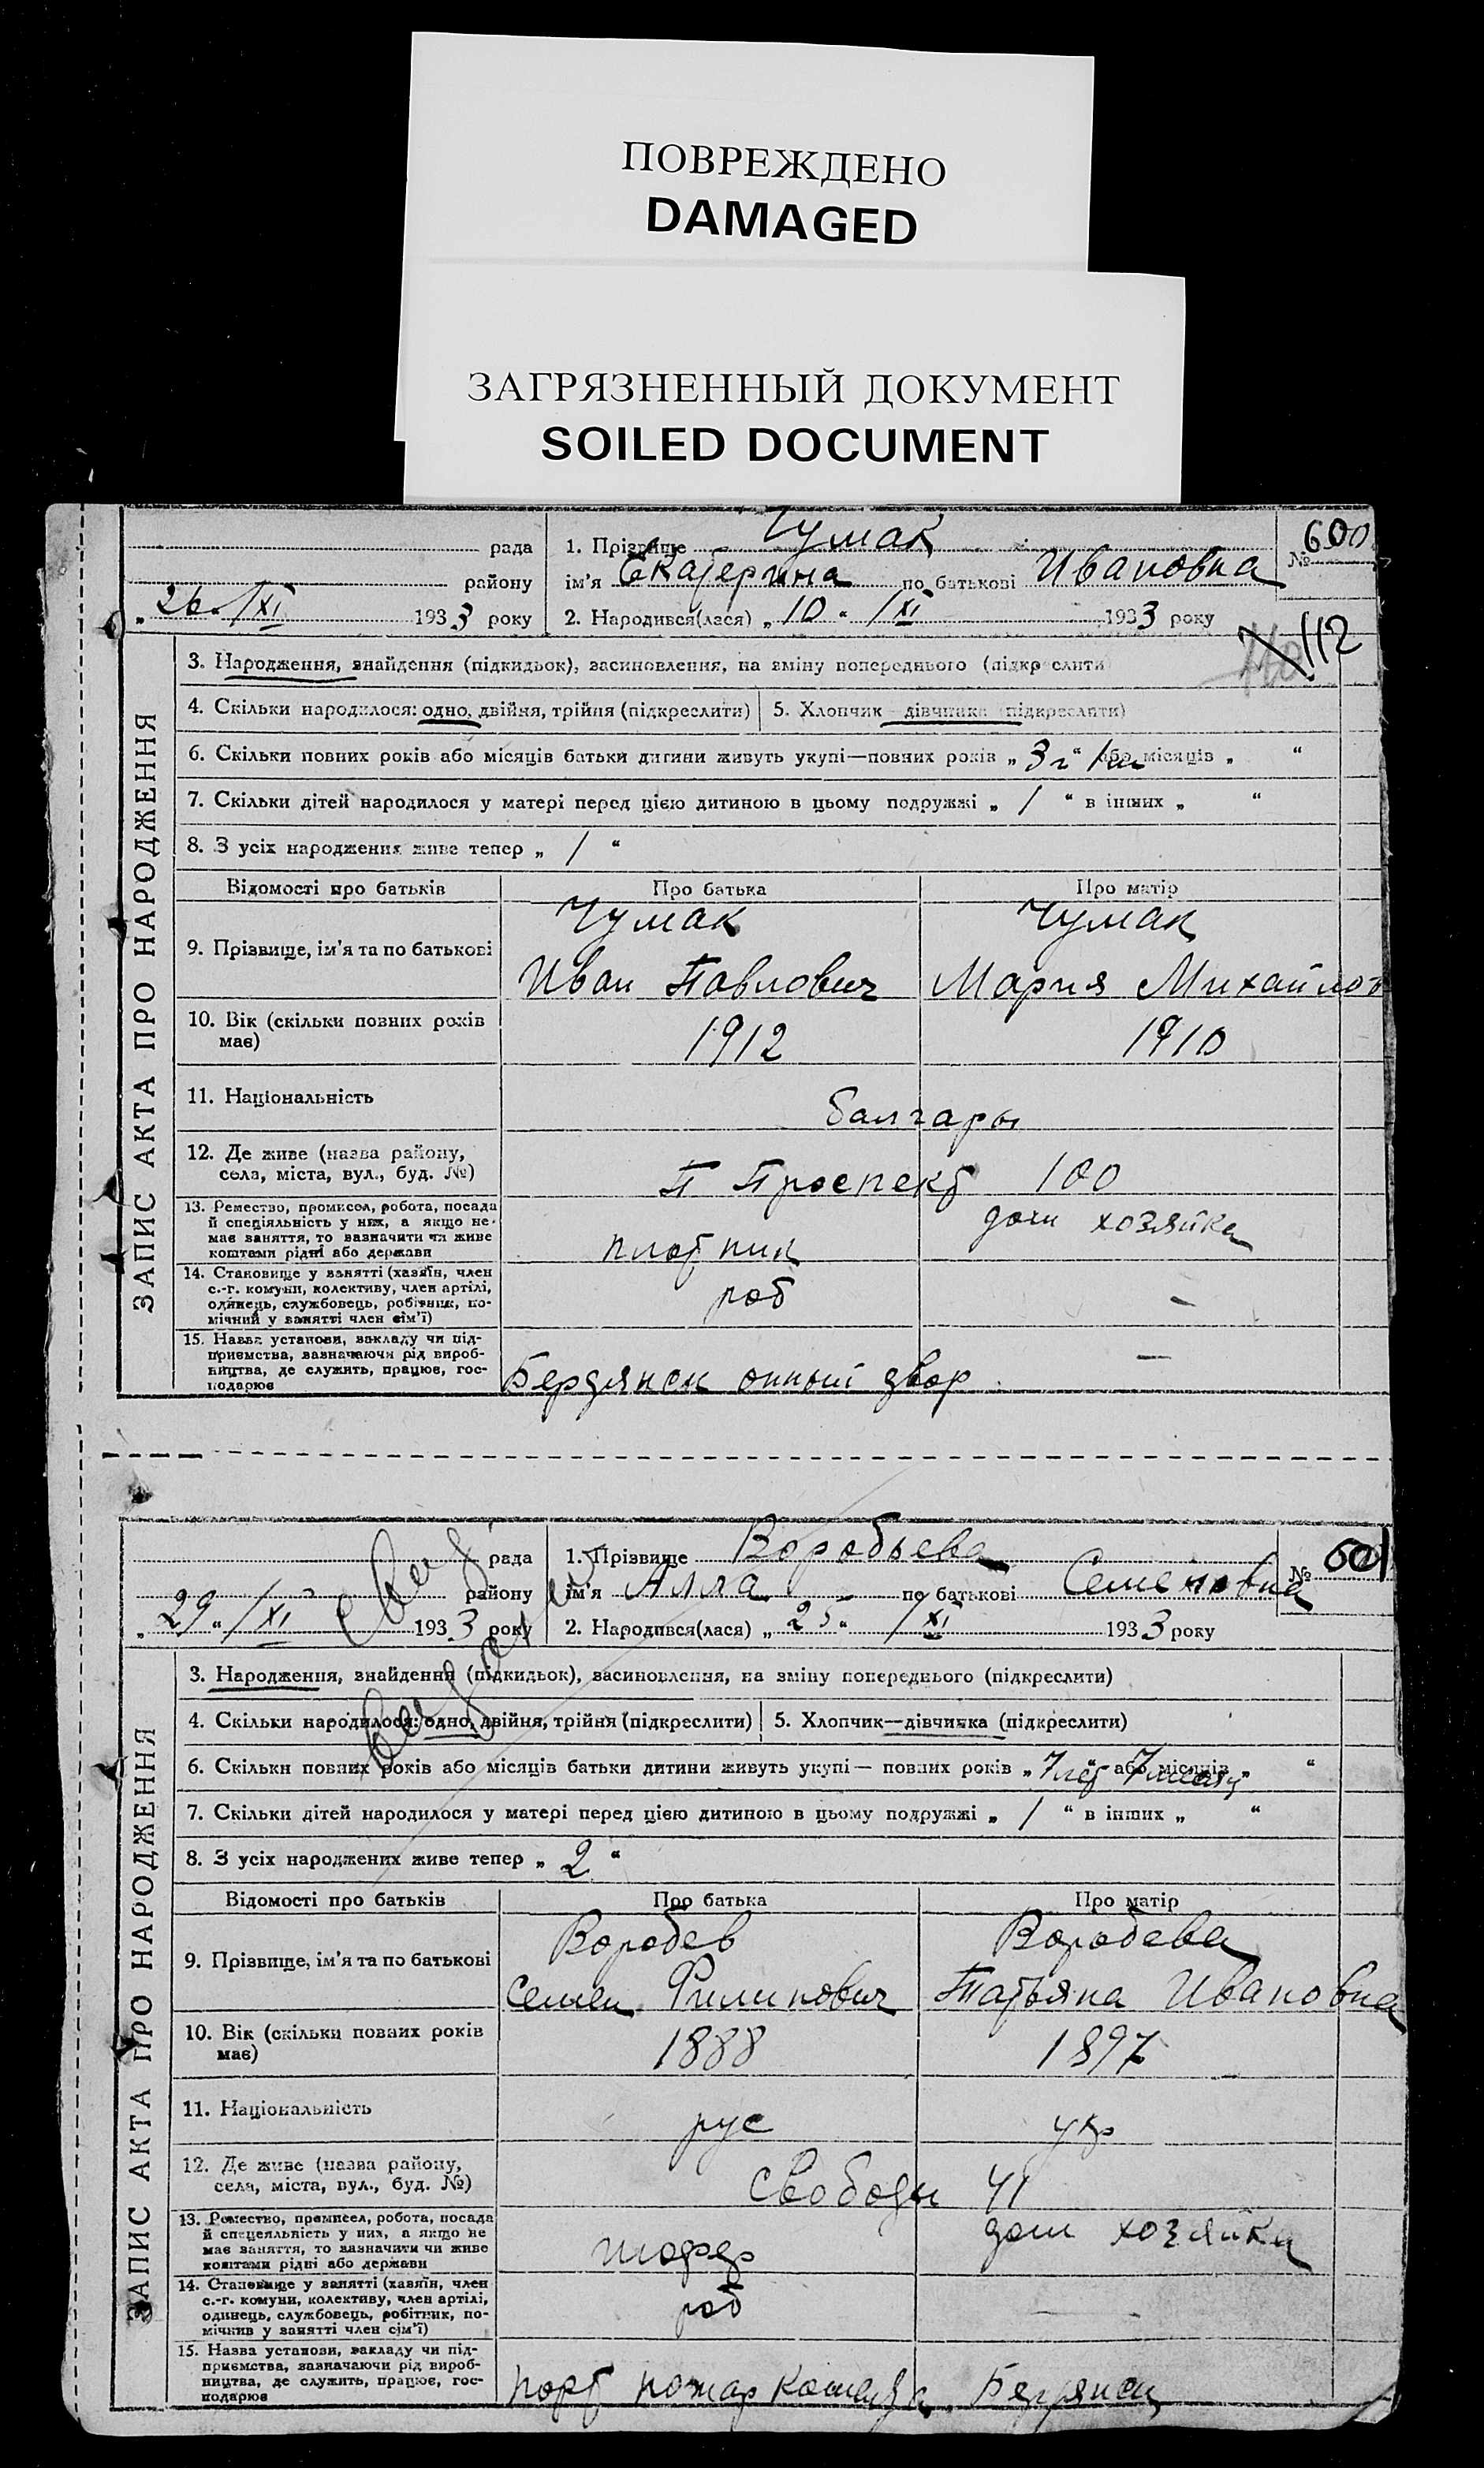 ПОВРЕЖДЕНО
DAMAGED
ЗАГРЯЗНЕННЫЙ ДОКУМЕНТ
SOILED DOCUMENT
ЗАПИС АКТА ПРО НАРОДЖЕННЯ
рада
району
„ 26 " /XI 1933 року
1. Прізвище Чумак
ім'я Екатерина по батькові Ивановна
2. Народився(лася) „ 10 " /XI 1933 року
№ 600
112
3. Народження, знайдення (підкидьок), засиновлення, на зміну попереднього (підкреслити
4. Скільки народилося: одно, двійня, трійня (підкреслити)
5. Хлопчик — дівчинка (підкреслити)
6. Скільки повних років або місяців батьки дитини живуть укупі—повних років „ 3 г " 1 м або місяців „ "
7. Скільки дітей народилося у матері перед цією дитиною в цьому подружжі „ 1 " в інших „ "
8. З усіх народження живе тепер „ 1 "
Відомості про батьків
Про батька
Про матір
9. Прізвище, ім'я та по батькові
Чумак
Иван Павлович
Чумак
Мария Михайлов
10. Вік (скільки повних років
має)
1912
1910
11. Національність
балгары
12. Де живе (назва району,
села, міста, вул., буд. №)
П Проспект 100
13. Ремество, промисел, робота, посада
й спеціяльність у них, а якщо не-
має заняття, то зазначити чи живе
коштами рідні або держави
плотник
дом хозяйка
14. Становище у занятті (хазяїн, член
с.-г. комуни, колективу, член артілі,
одинець, службовець, робітник, по-
мічний у занятті член сім'ї)
раб
—
15. Назва установи, закладу чи під-
приємства, зазначаючи рід вироб-
ництва, де служить, працює, гос-
подарює
Бердянск двор
—
ЗАПИС АКТА ПРО НАРОДЖЕННЯ
рада
району
„ 29 " /XI 1933 року
1. Прізвище Воробьева
ім'я Алла по батькові Семеновна
2. Народився(лася) „ 25 " /XI 1933 року
№ 601
3. Народження, знайдення (підкидьок), засиновлення, на зміну попереднього (підкреслити)
4. Скільки народилося: одно, двійня, трійня (підкреслити)
5. Хлопчик—дівчинка (підкреслити)
6. Скільки повних років або місяців батьки дитини живуть укупі— повних років „ 7 лет 7 месяц або місяців „ "
7. Скільки дітей народилося у матері перед цією дитиною в цьому подружжі „ 1 " в інших „ "
8. З усіх народжених живе тепер „ 2 "
Відомості про батьків
Про батька
Про матір
9. Прізвище, ім'я та по батькові
Воробев
Семен Филипович
Воробева
Татьяна Ивановна
10. Вік (скільки повних років
має)
1888
1897
11. Національність
рус
укр
12. Де живе (назва району,
села, міста, вул., буд. №)
Свободы 41
13. Ремество, промисел, робота, посада
й спецеяльність у них, а якщо не
має заняття, то зазначити чи живе
коштами рідні або держави
шофер
дом хозяйка
14. Становище у занятті (хазяїн, член
с.-г. комуни, колективу, член артілі,
одинець, службовець, робітник, по-
мічник у занятті член сім'ї)
раб
15. Назва установи, закладу чи під-
приємства, зазначаючи рід вироб-
ництва, де служить, працює, гос-
подарює
порт пожар команда Бердянск